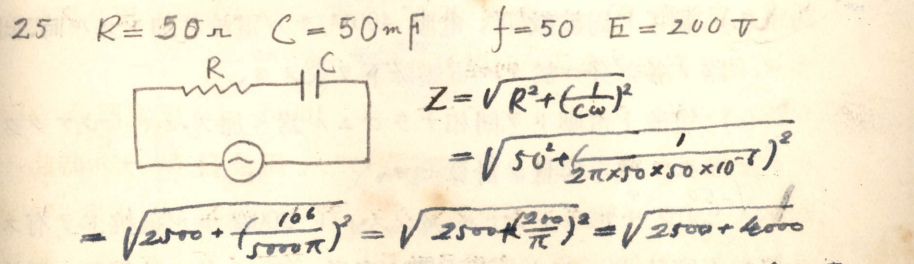 25 R=50Ω C=50mF f=50 E=200V
R C
Z=√R²+(1/Cω)²
=√50²+(1/2π×50×50×10⁻⁶)²
=√2500+(10⁶/5000π)² =√2500+(200/π)² =√2500+4000